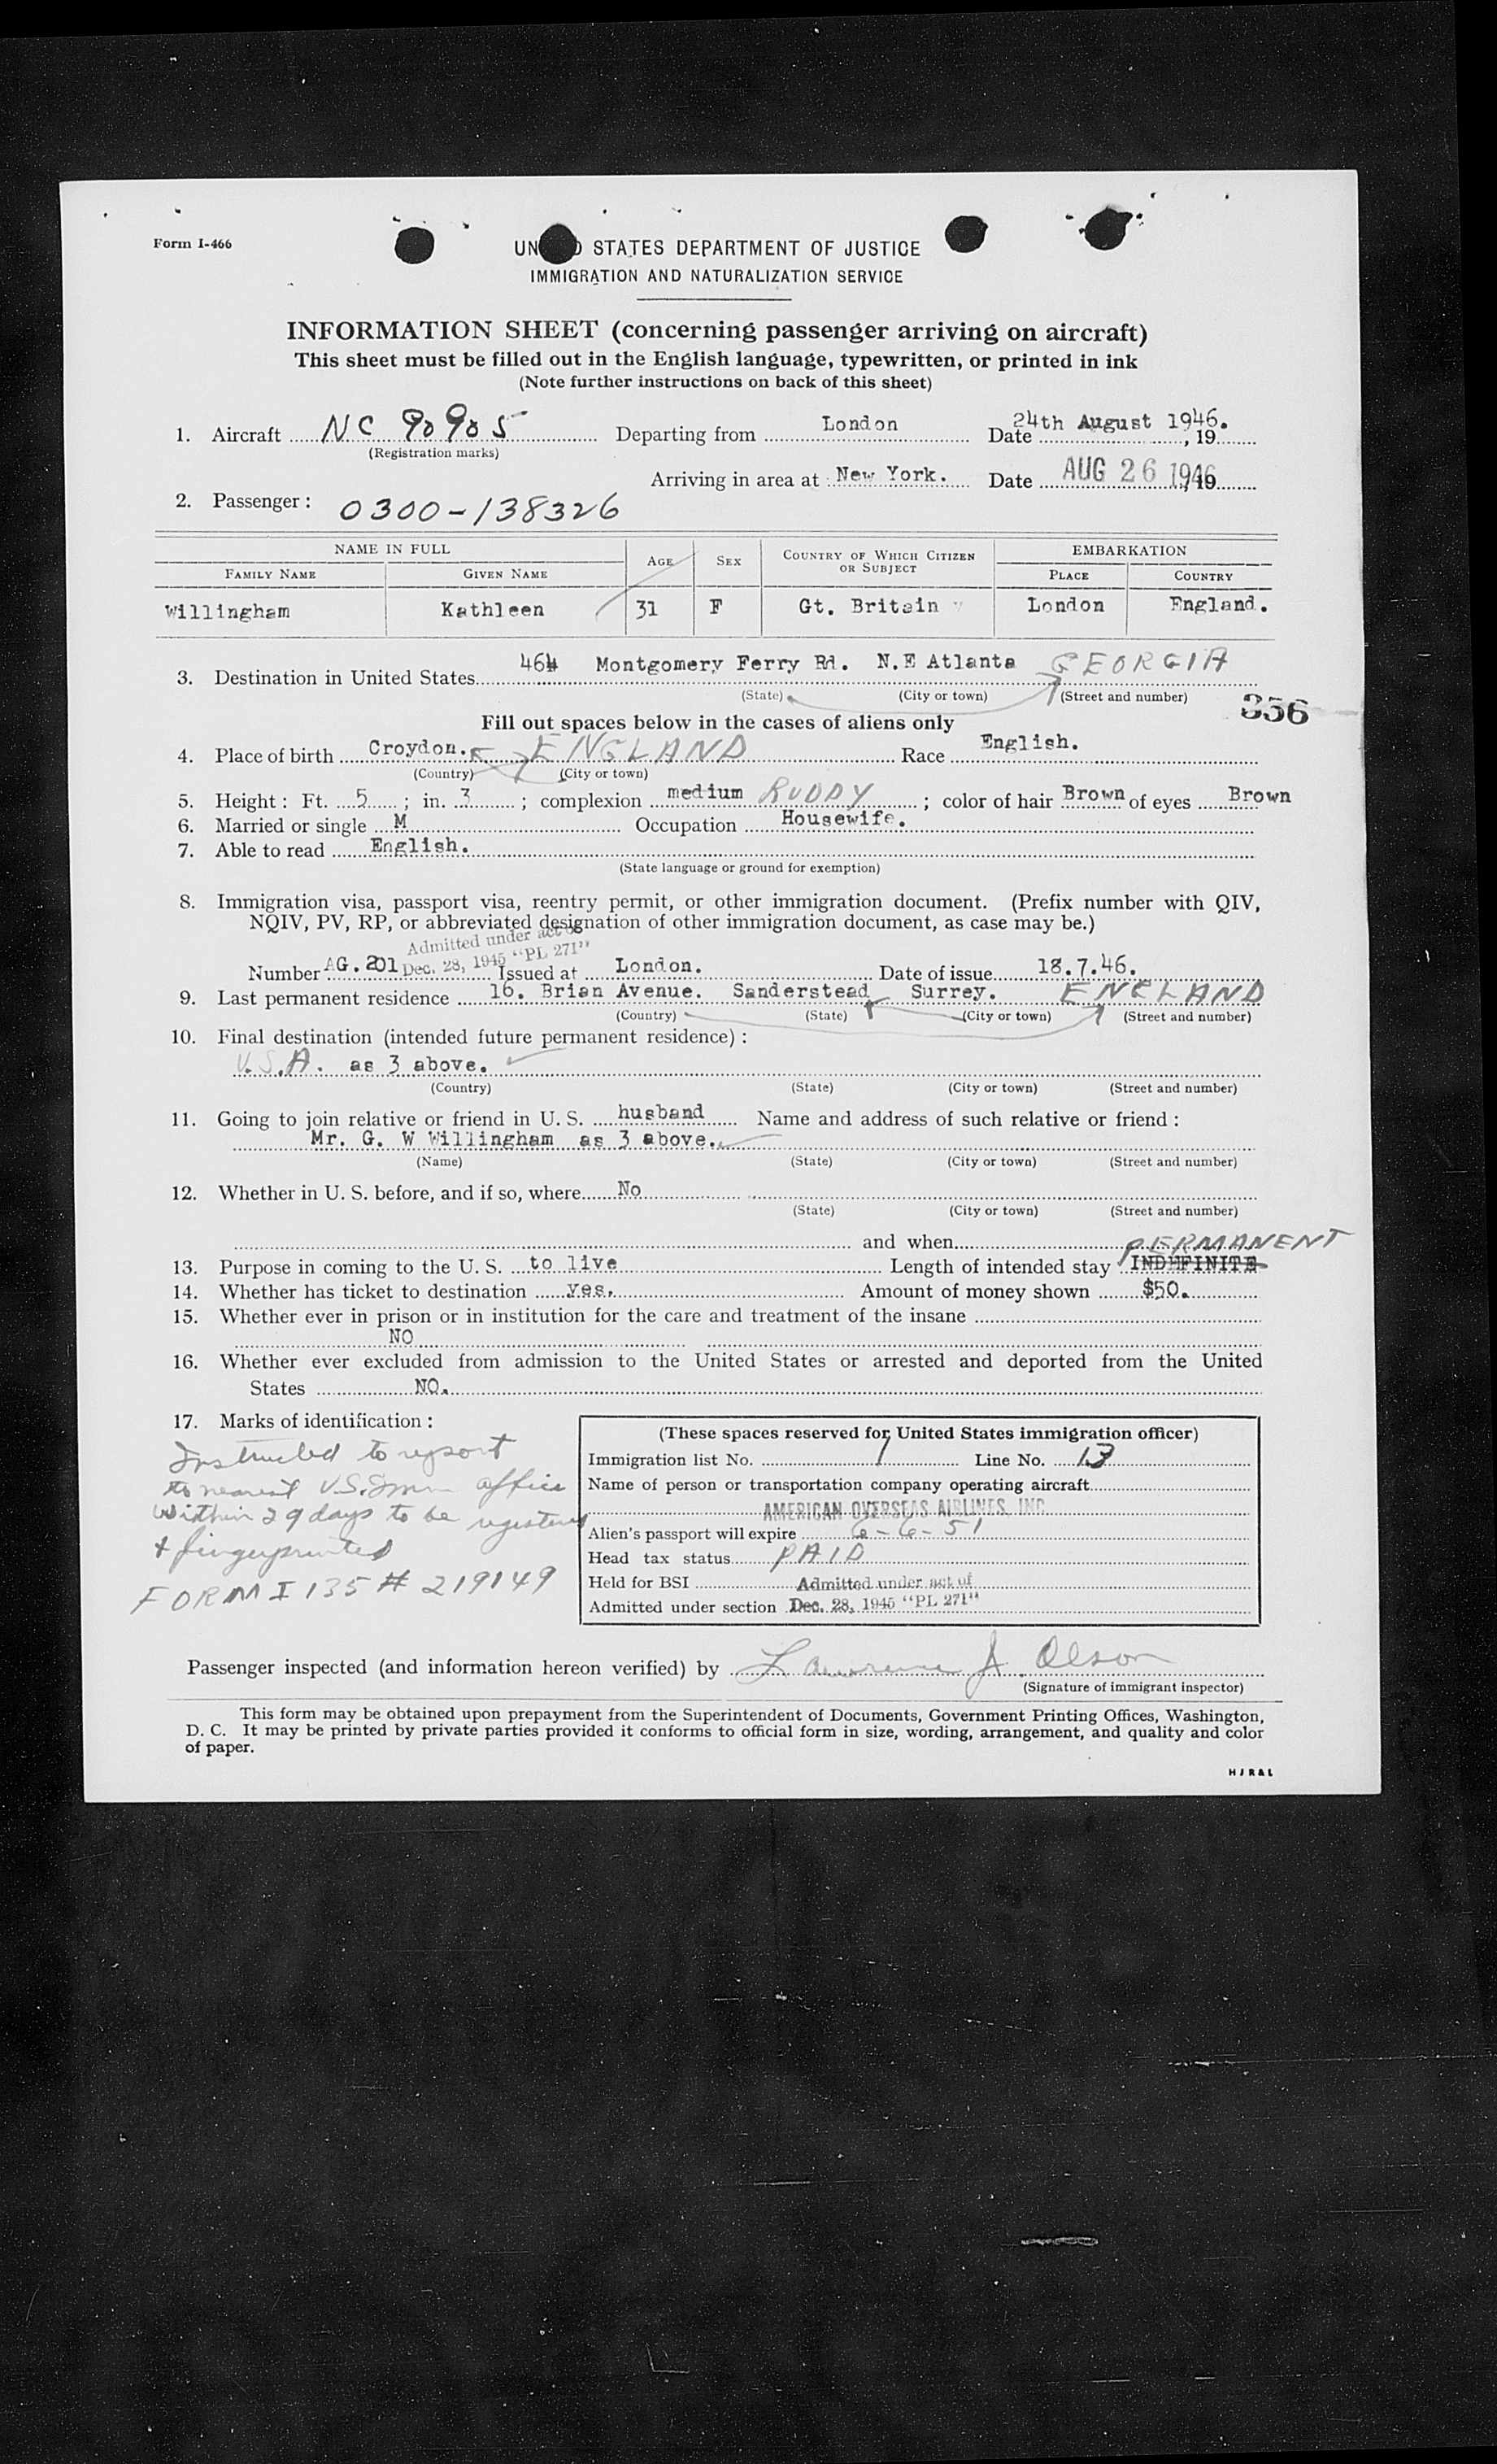 Form I-466
UNITED STATES DEPARTMENT OF JUSTICE
IMMIGRATION AND NATURALIZATION SERVICE
INFORMATION SHEET (concerning passenger arriving on aircraft)
This sheet must be filled out in the English language, typewritten, or printed in ink
(Note further instructions on back of this sheet)
1. Aircraft NC 90905 Departing from London Date 24th August 1946. , 19
(Registration marks)
Arriving in area at New York. Date AUG 26 1946 , 19
2. Passenger : 0300-138326
NAME IN FULL AGE SEX COUNTRY OF WHICH CITIZEN OR SUBJECT EMBARKATION
FAMILY NAME GIVEN NAME PLACE COUNTRY
Willingham Kathleen 31 F Gt. Britain London England.
3. Destination in United States 464 Montgomery Ferry Rd. N.E Atlanta GEORGIA
(State) (City or town) (Street and number)
356
Fill out spaces below in the cases of aliens only
4. Place of birth Croydon. ENGLAND Race English.
(Country) (City or town)
5. Height : Ft. 5 ; in. 3 ; complexion medium RUDDY ; color of hair Brown of eyes Brown
6. Married or single M Occupation Housewife.
7. Able to read English.
(State language or ground for exemption)
8. Immigration visa, passport visa, reentry permit, or other immigration document. (Prefix number with QIV,
NQIV, PV, RP, or abbreviated designation of other immigration document, as case may be.)
Admitted under act of
Dec. 28, 1945 "PL 271"
Number AG. 201 Issued at London. Date of issue 18.7.46.
9. Last permanent residence 16. Brian Avenue. Sanderstead Surrey. ENGLAND
(Country) (State) (City or town) (Street and number)
10. Final destination (intended future permanent residence) :
U.S.A. as 3 above.
(Country) (State) (City or town) (Street and number)
11. Going to join relative or friend in U. S. husband Name and address of such relative or friend :
Mr. G. W Willingham as 3 above.
(Name) (State) (City or town) (Street and number)
12. Whether in U. S. before, and if so, where No
(State) (City or town) (Street and number)
and when
PERMANENT
13. Purpose in coming to the U. S. to live Length of intended stay INDEFINITE
14. Whether has ticket to destination yes. Amount of money shown $50.
15. Whether ever in prison or in institution for the care and treatment of the insane
NO
16. Whether ever excluded from admission to the United States or arrested and deported from the United
States NO.
17. Marks of identification :
Instructed to report
to nearest U.S. Imm office
within 29 days to be registered
+ fingerprinted
FORM I 135 # 219149
(These spaces reserved for United States immigration officer)
Immigration list No. 1 Line No. 13
Name of person or transportation company operating aircraft
AMERICAN OVERSEAS AIRLINES, INC
Alien's passport will expire 6-6-51
Head tax status PAID
Held for BSI Admitted under act of
Admitted under section Dec. 28, 1945 "PL 271"
Passenger inspected (and information hereon verified) by Lawrence J. Olson
(Signature of immigrant inspector)
This form may be obtained upon prepayment from the Superintendent of Documents, Government Printing Offices, Washington,
D. C. It may be printed by private parties provided it conforms to official form in size, wording, arrangement, and quality and color
of paper.
HJR&L